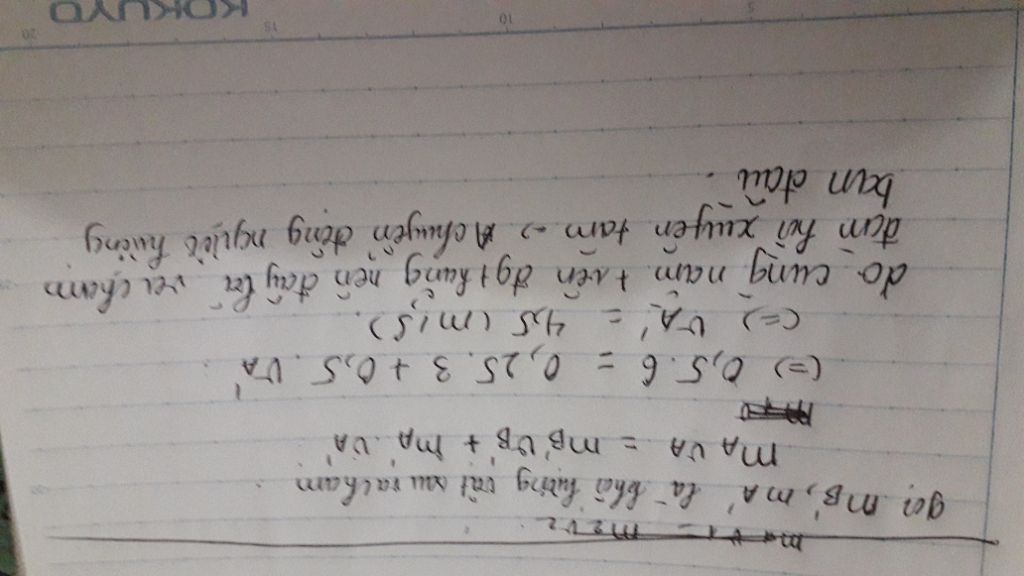 m₁ v₁ = m₂ v₂
gọi mB', mA' là khối lượng vật sau va chạm
mA vA = mB' vB' + mA' . vA'
(=) 0,5 . 6 = 0,25 . 3 + 0,5 . vA'
(=) vA' = 4,5 (m/s).
do cùng nằm trên đg thẳng nên đây là va chạm
đàn hồi xuyên tâm → A chuyển động ngược hướng
ban đầu.
5 10 15 20
KOKUYO